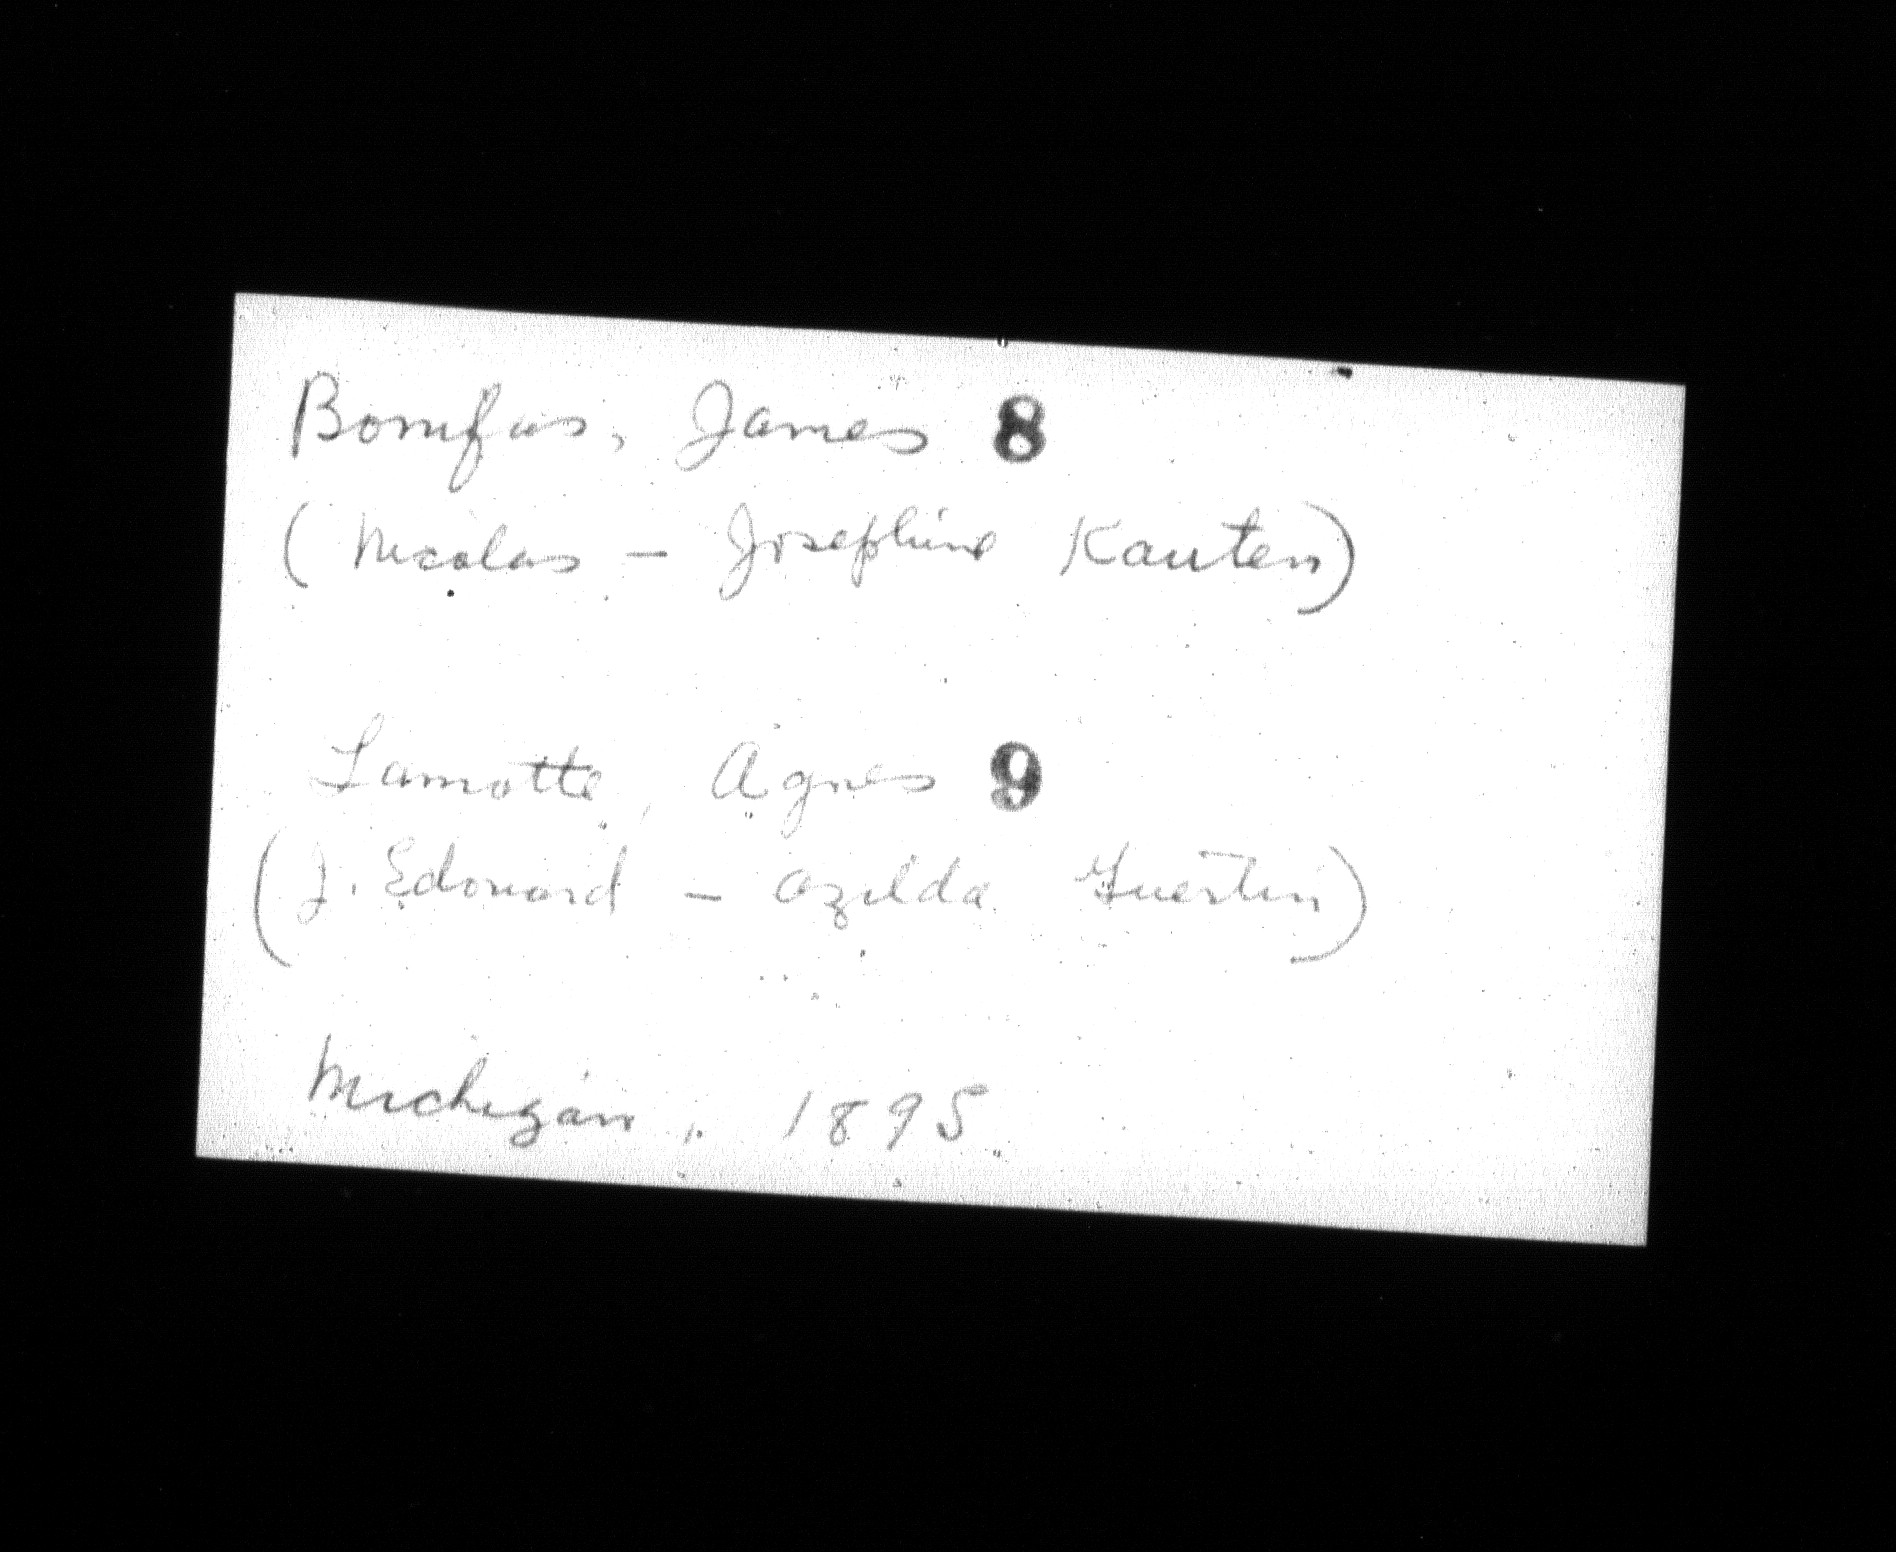 Bonifas, James 8
(Nicolas - Josephine Kauten)
Lamotte, Agnes 9
(J. Edouard - Azilda Guertin)
Michigan, 1895